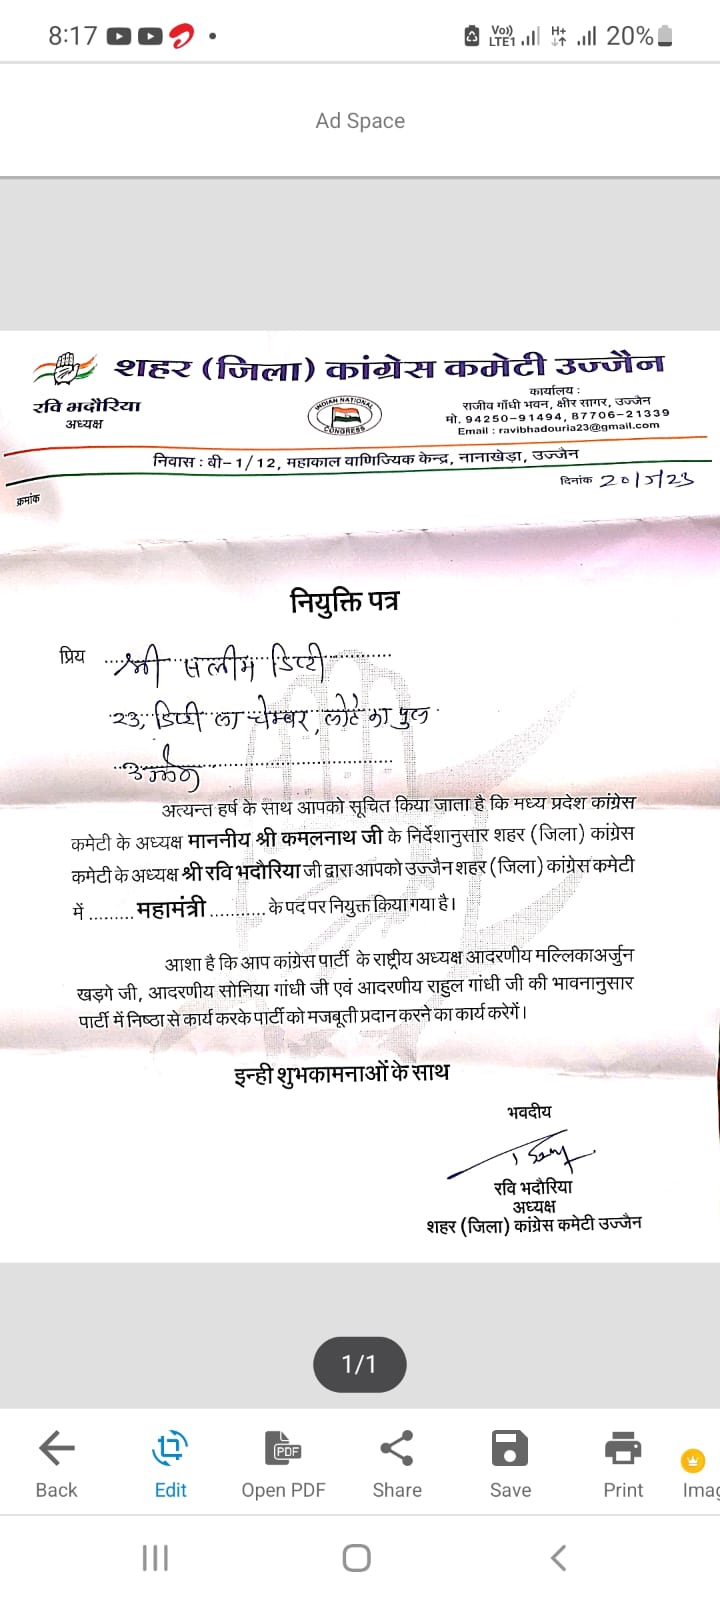 8:17
Vo)) LTE1 H+ 20%
Ad Space
शहर (जिला) कांग्रेस कमेटी उज्जैन
रवि भदौरिया
अध्यक्ष
INDIAN NATIONAL CONGRESS
कार्यालय :
राजीव गाँधी भवन, क्षीर सागर, उज्जैन
मो. 94250-91494, 87706-21339
Email : ravibhadouria23@gmail.com
निवास : बी-1/12, महाकाल वाणिज्यिक केन्द्र, नानाखेड़ा, उज्जैन
क्रमांक
दिनांक 20/5/23
नियुक्ति पत्र
प्रिय श्री सलीम डिप्टी
23, डिप्टी का चेम्बर, लोटे का पुल
उज्जैन
अत्यन्त हर्ष के साथ आपको सूचित किया जाता है कि मध्य प्रदेश कांग्रेस
कमेटी के अध्यक्ष माननीय श्री कमलनाथ जी के निर्देशानुसार शहर (जिला) कांग्रेस
कमेटी के अध्यक्ष श्री रवि भदौरिया जी द्वारा आपको उज्जैन शहर (जिला) कांग्रेस कमेटी
में ......... महामंत्री ........... के पद पर नियुक्त किया गया है।
आशा है कि आप कांग्रेस पार्टी के राष्ट्रीय अध्यक्ष आदरणीय मल्लिकाअर्जुन
खड़गे जी, आदरणीय सोनिया गांधी जी एवं आदरणीय राहुल गांधी जी की भावनानुसार
पार्टी में निष्ठा से कार्य करके पार्टी को मजबूती प्रदान करने का कार्य करेगें।
इन्ही शुभकामनाओं के साथ
भवदीय
रवि भदौरिया
अध्यक्ष
शहर (जिला) कांग्रेस कमेटी उज्जैन
1/1
PDF
Back Edit Open PDF Share Save Print Imag